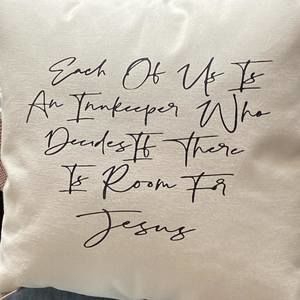 Each Of Us Is
An Innkeeper Who
DecidesIf There
Is Room For
Jesus